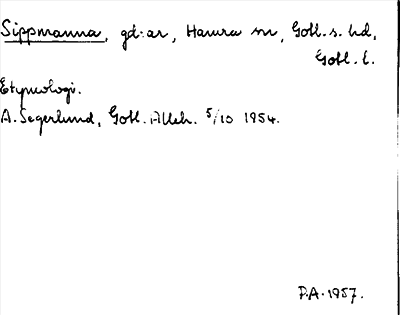 Sippmanna, gd:ar, Hamra sn, Gotl. s. hd,
Gotl. l.
Etymologi.
A. Segerlund, Gotl. Alleh. 5/10 1954.
P.A. 1957.